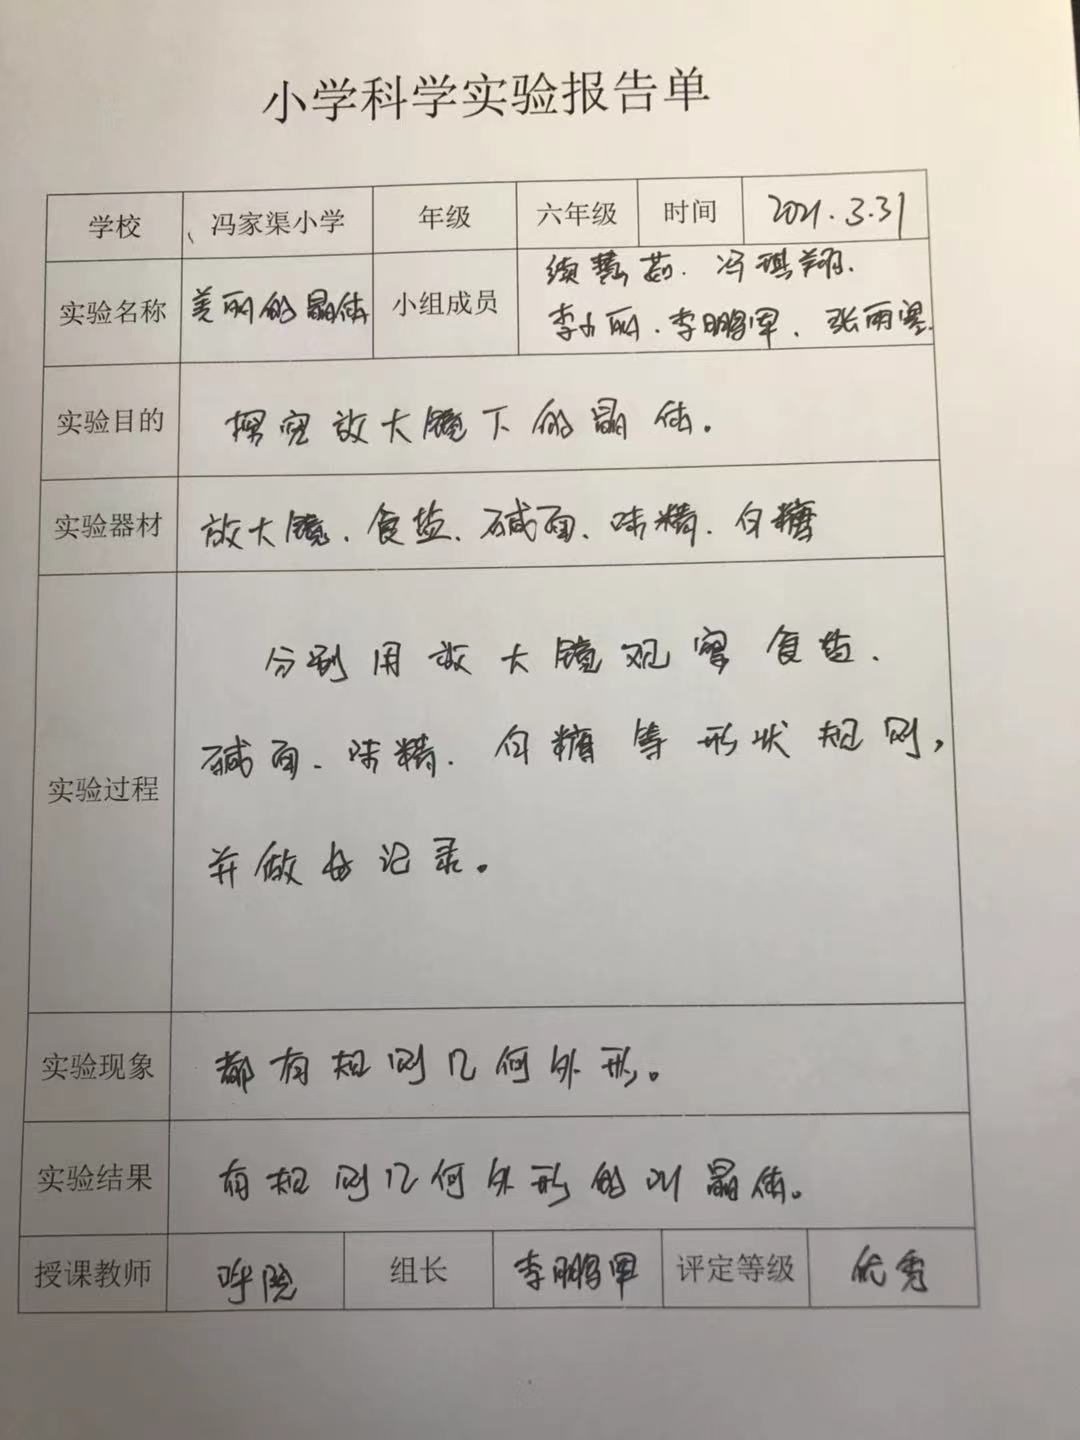 小学科学实验报告单
学校 冯家渠小学 年级 六年级 时间 2021.3.31
实验名称 美丽的晶体 小组成员 冯琪翔.
李鹏军、张雨
实验目的 探究放大镜下的晶体。
实验器材 放大镜、食盐、碱面、味精、白糖
实验过程 分别用放大镜观察食盐、
碱面、味精、白糖等形状规则,
并做好记录。
实验现象 都有规则几何外形。
实验结果 有规则几何外形的叫晶体。
授课教师 组长 李鹏军 评定等级 优秀